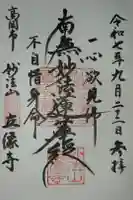 令和七年九月二十一日参拝
一心欲見佛
南無妙法蓮華経
不自惜身命
高岡市
妙法山